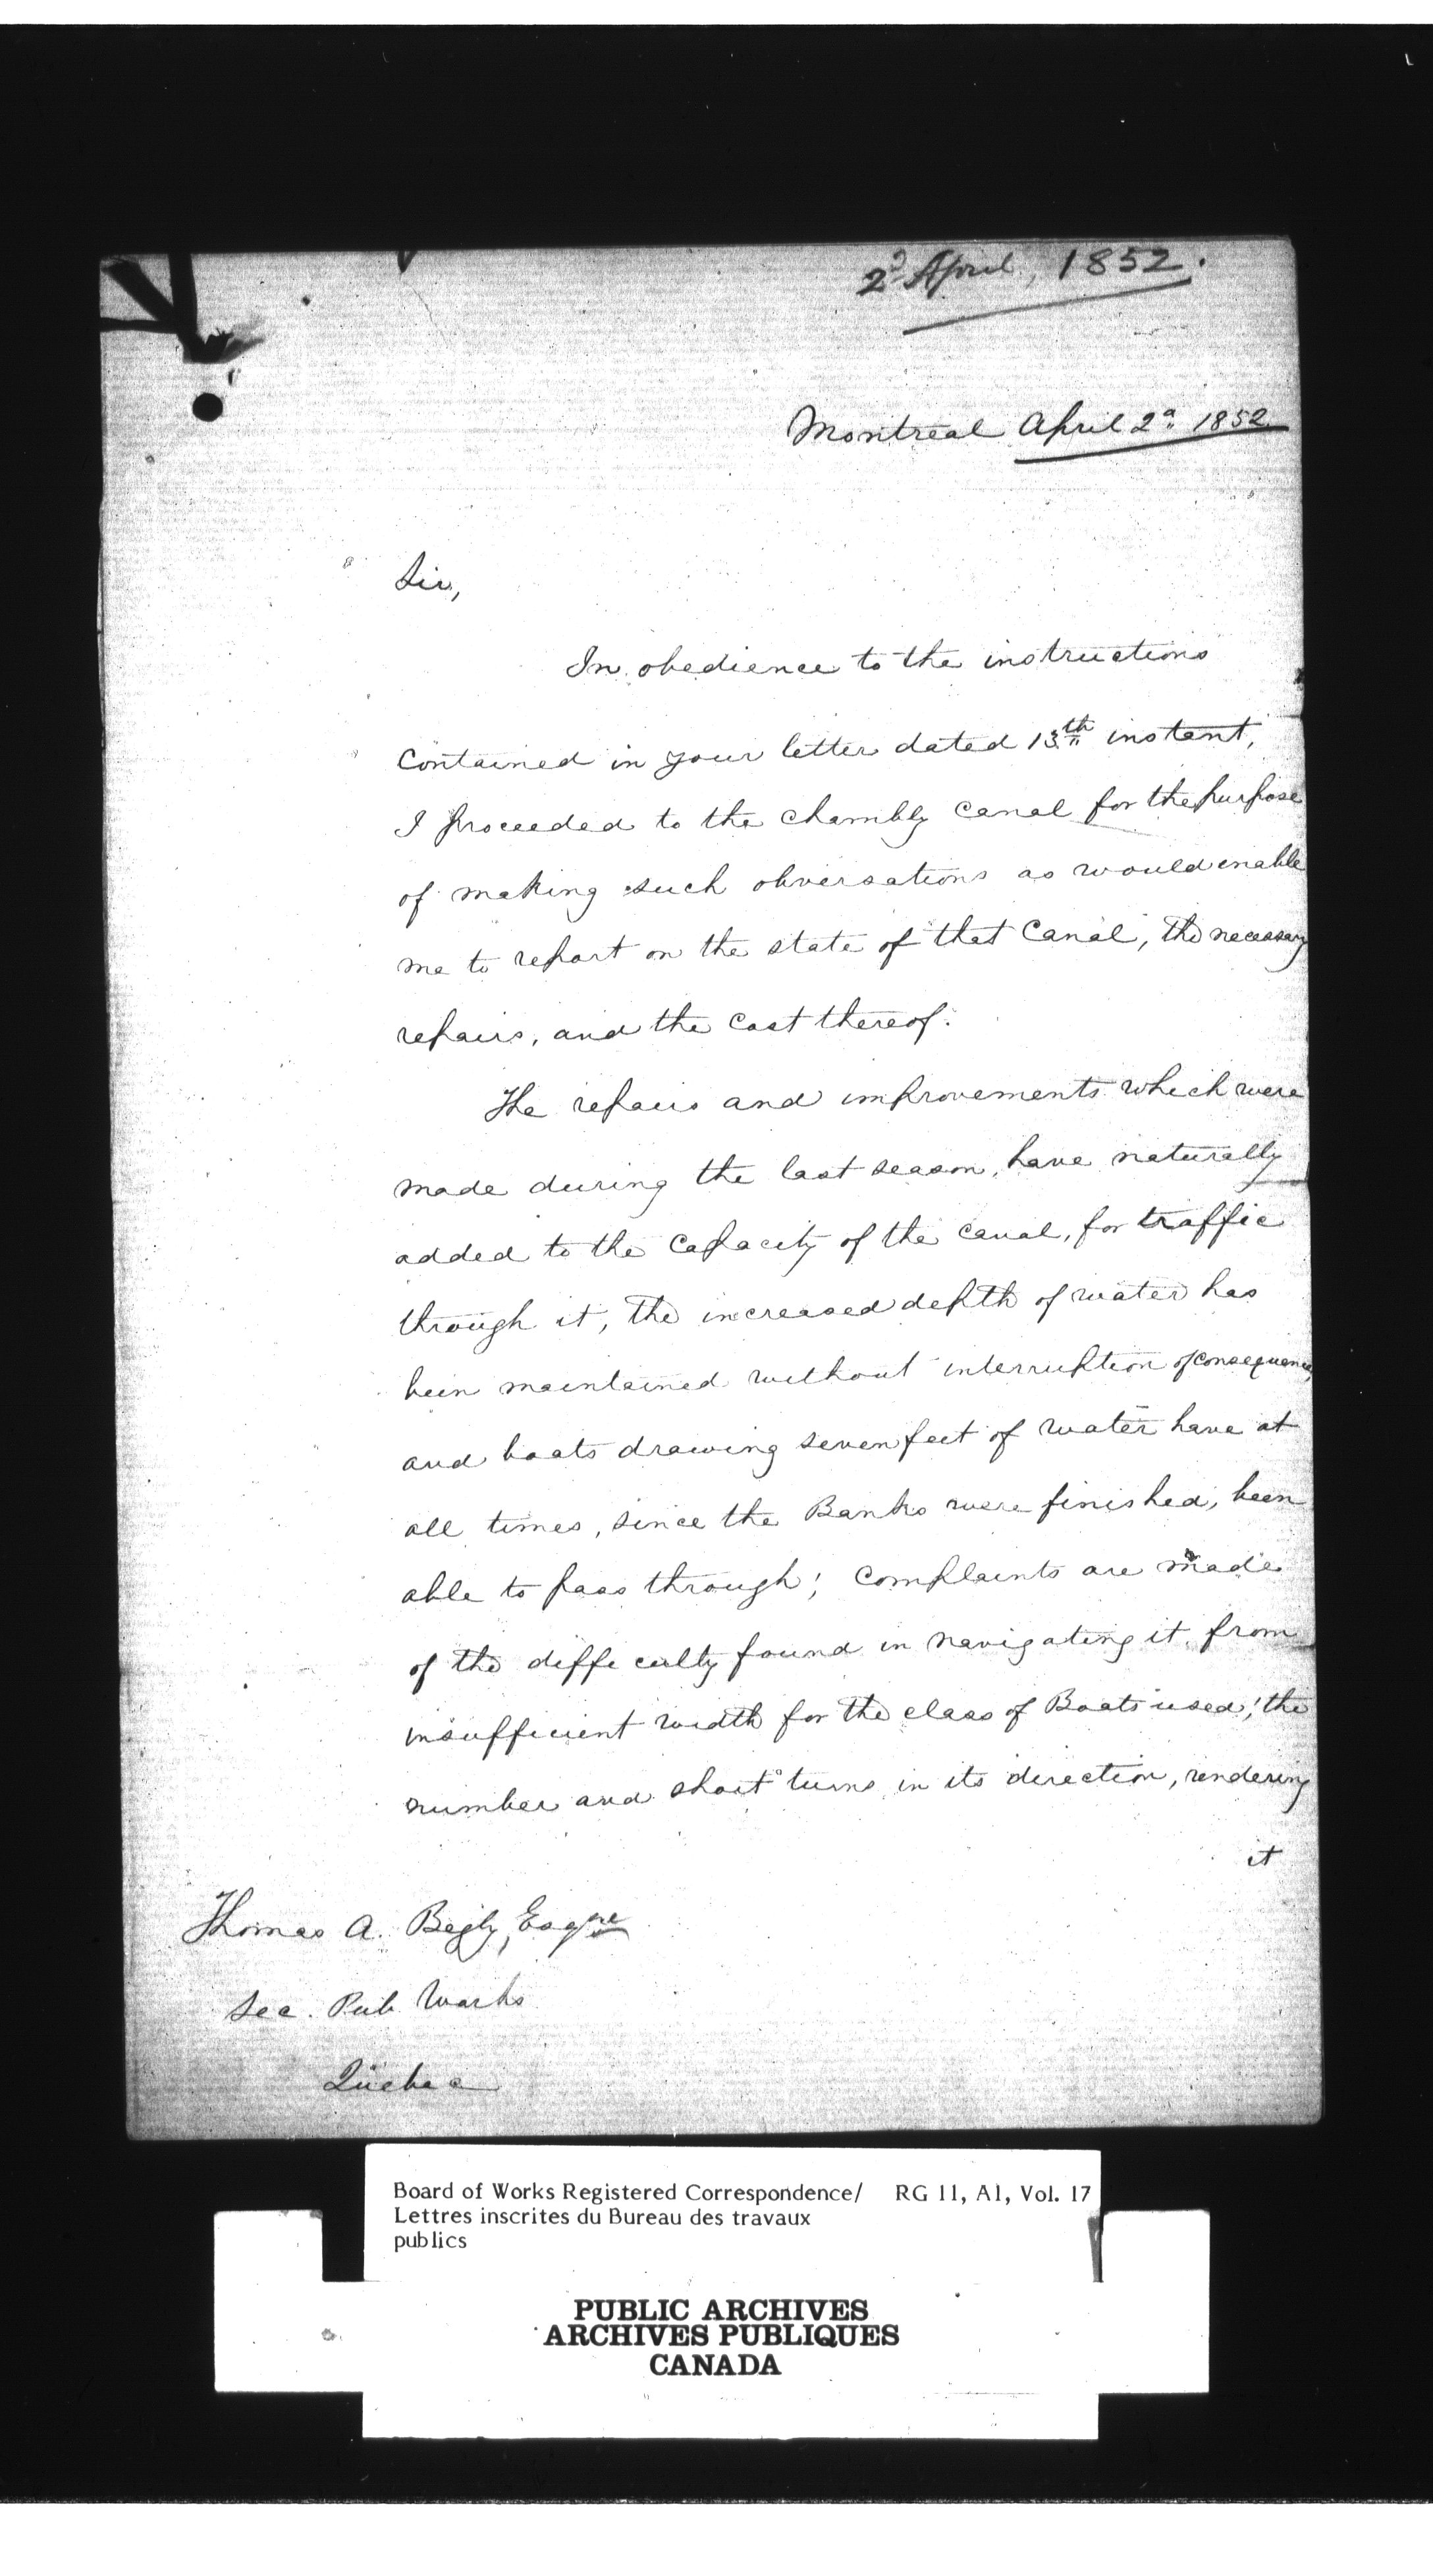 2d April, 1852.
Montreal April 2d 1852
Sir,
In obedience to the instructions
contained in your letter dated 13th instant,
I proceeded to the Chambly Canal for the purpose
of making such observations as would enable
me to report on the state of that Canal, the necessary
repairs, and the cost thereof.
The repairs and improvements which were
made during the last season, have naturally
added to the capacity of the canal, for traffic
through it, the increased depth of water has
been maintained without interruption of consequence,
and boats drawing seven feet of water have at
all times, since the Banks were finished, been
able to pass through; complaints are made
of the difficulty found in navigating it from
insufficient width for the class of Boats used; the
number and short turns in its direction, rendering
it
Thomas A. Begly, Esqre
Sec. Pub Works
Quebec
Board of Works Registered Correspondence/ RG 11, A1, Vol. 17
Lettres inscrites du Bureau des travaux
publics
PUBLIC ARCHIVES
ARCHIVES PUBLIQUES
CANADA